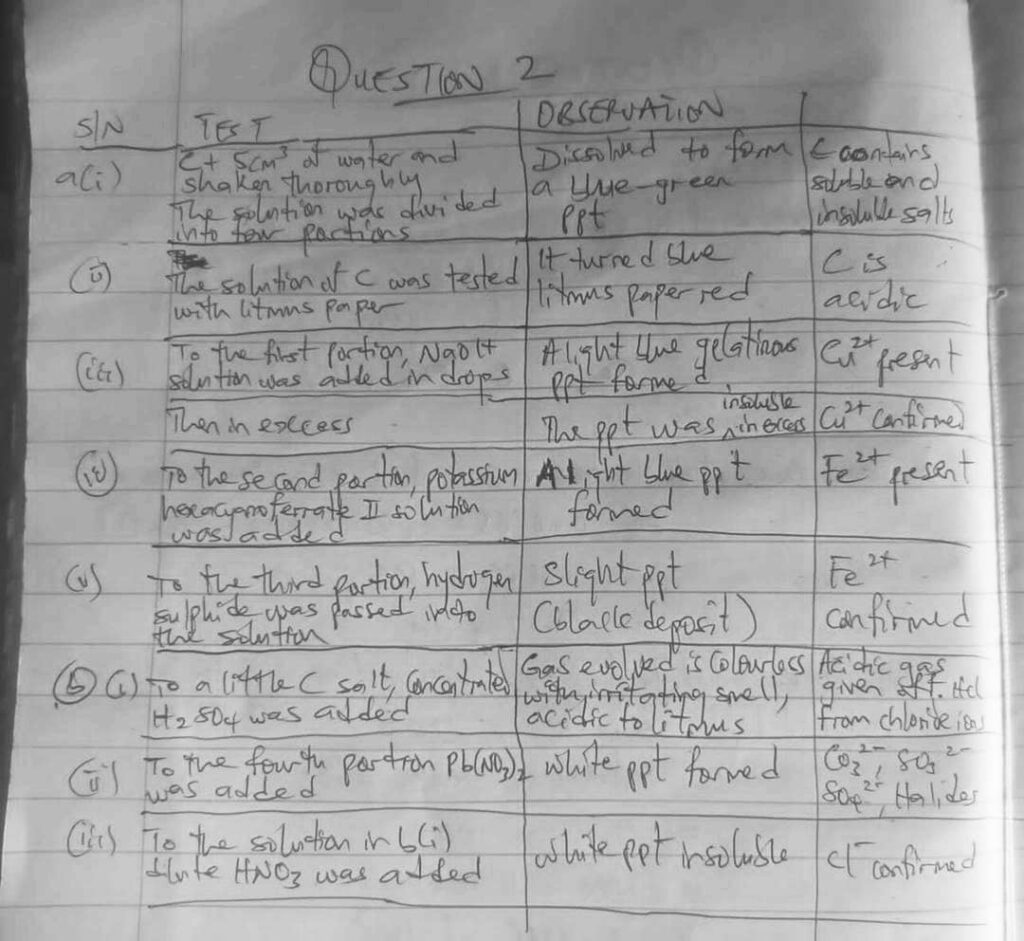 QUESTION 2
S/N TEST OBSERVATION
a(i) C + 5cm³ of water and
shaken thoroughly
The solution was divided
into four portions
Dissolved to form
a blue-green
ppt
C contains
soluble and
insoluble salts
(ii) The solution of C was tested
with litmus paper
It turned blue
litmus paper red
C is
acidic
(iii) To the first portion, NaOH
solution was added in drops
A light blue gelatinous
ppt formed
Cu²⁺ present
Then in excess
The ppt was insoluble in excess
Cu²⁺ confirmed
(iv) To the second portion, potassium
hexacyanoferrate II solution
was added
A light blue ppt
formed
Fe²⁺ present
(v) To the third portion, hydrogen
sulphide was passed into
the solution
Slight ppt
(black deposit)
Fe²⁺
confirmed
(b) (i) To a little C salt, concentrated
H₂SO₄ was added
Gas evolved is colourless
with irritating smell,
acidic to litmus
Acidic gas
given off. HCl
from chloride ions
(ii) To the fourth portion Pb(NO₃)₂
was added
White ppt formed
CO₃²⁻, SO₃²⁻
SO₄²⁻, Halides
(iii) To the solution in b(i)
dilute HNO₃ was added
White ppt insoluble
Cl⁻ confirmed